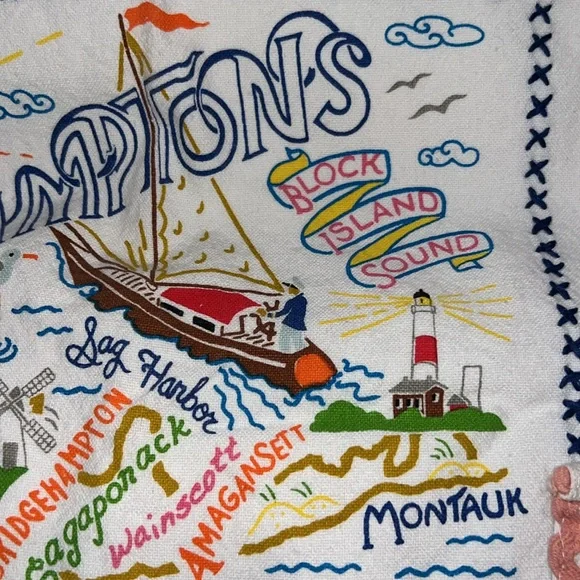 MPTON·S
BLOCK
ISLAND
SOUND
Sag Harbor
RIDGEHAMPTON
agaponack
Wainscott
AMAGANSETT
MONTAUK